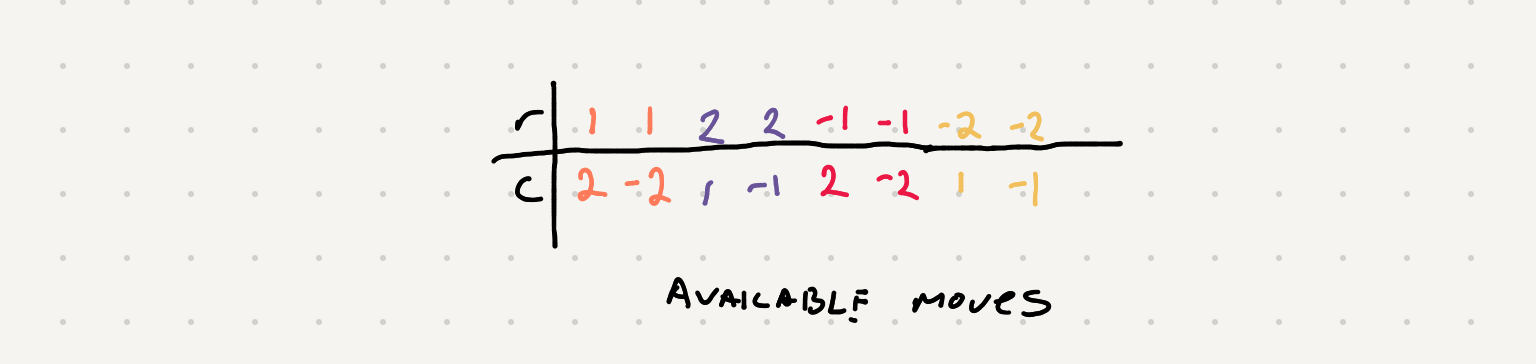 r 1 1 2 2 -1 -1 -2 -2
c 2 -2 1 -1 2 -2 1 -1
AVAILABLE MOVES